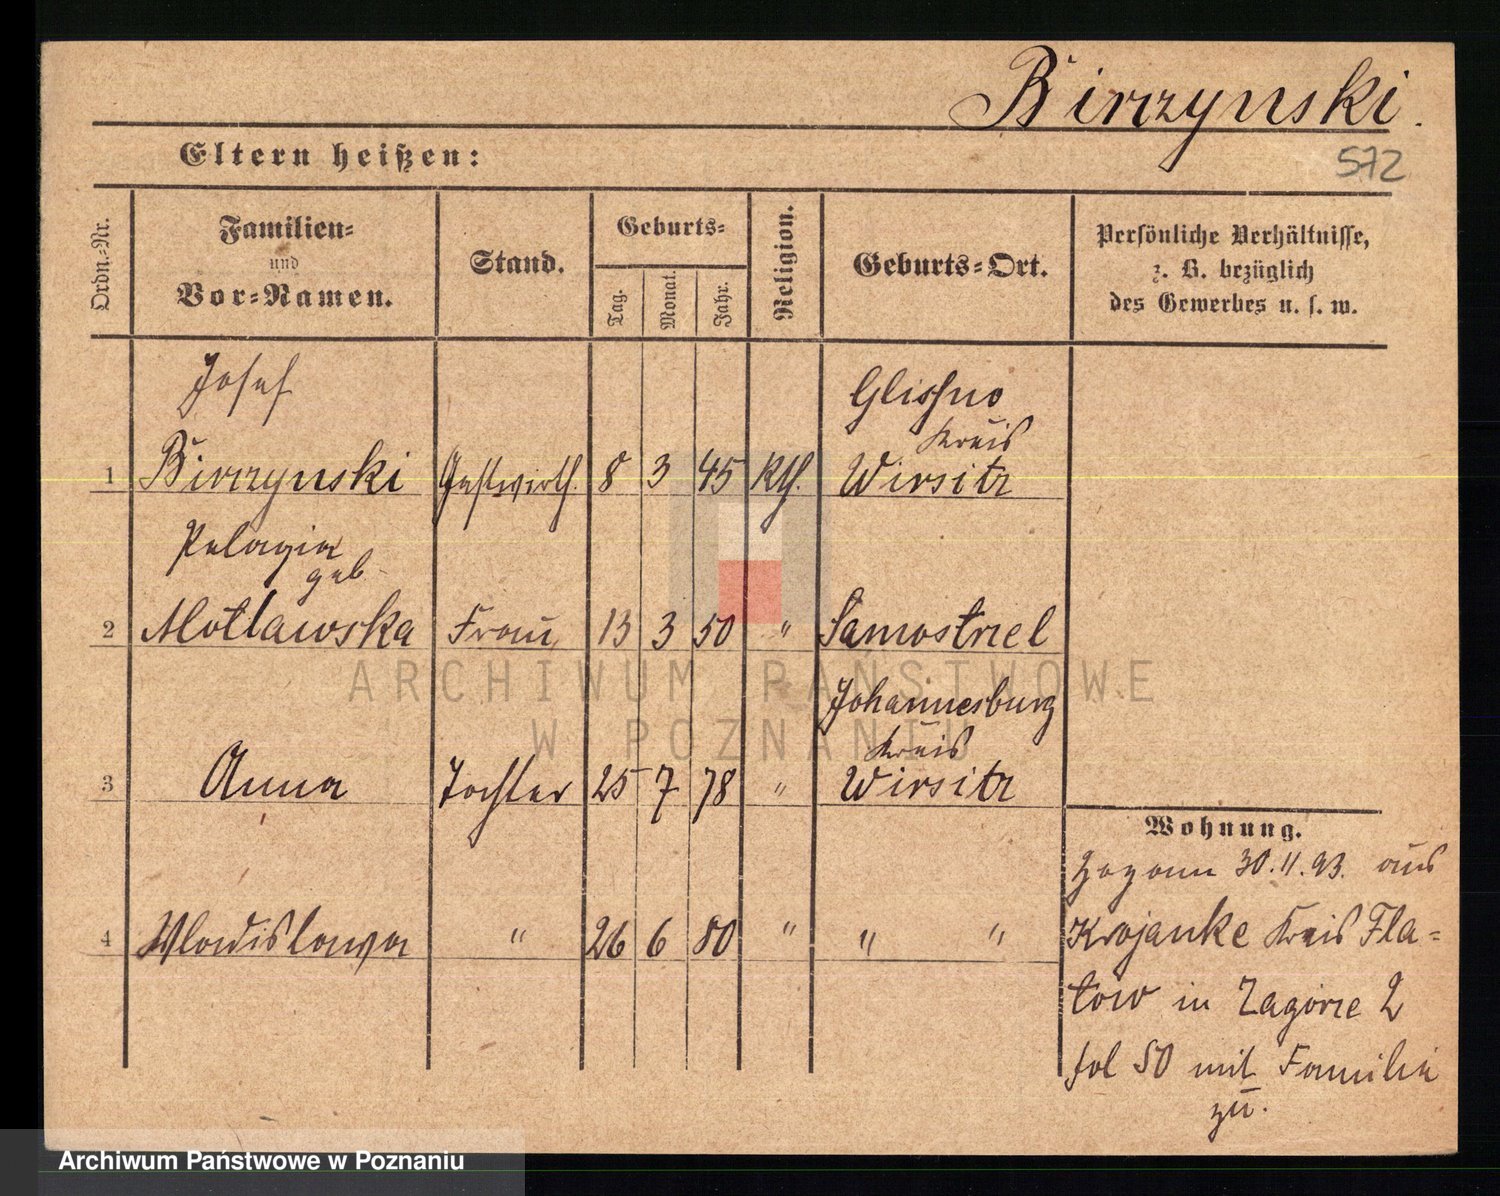 Birzynski.
572
Eltern heißen:
Ordn.-Nr.
Familien-
und
Vor-Namen.
Stand.
Geburts-
Tag.
Monat.
Jahr.
Religion.
Geburts-Ort.
Persönliche Verhältnisse,
z. B. bezüglich
des Gewerbes u. s. w.
Josef
Glishno
Kreis
1 Birzynski Gastwirth. 8 3 45 Kth. Wirsitz
Pelagia
geb.
2 Motlawska Frau 13 3 50 " Samostrzel
Johannesburg
Kreis
3 Anna Tochter 25 7 78 " Wirsitz
4 Wladislawa " 26 6 80 " " "
Wohnung.
Zog am 30.11.93. aus
Krojanke Kreis Fla=
tow in Zagorze 2
fol 50 mit Familie
zu.
ARCHIWUM PAŃSTWOWE
W POZNANIU
Archiwum Państwowe w Poznaniu